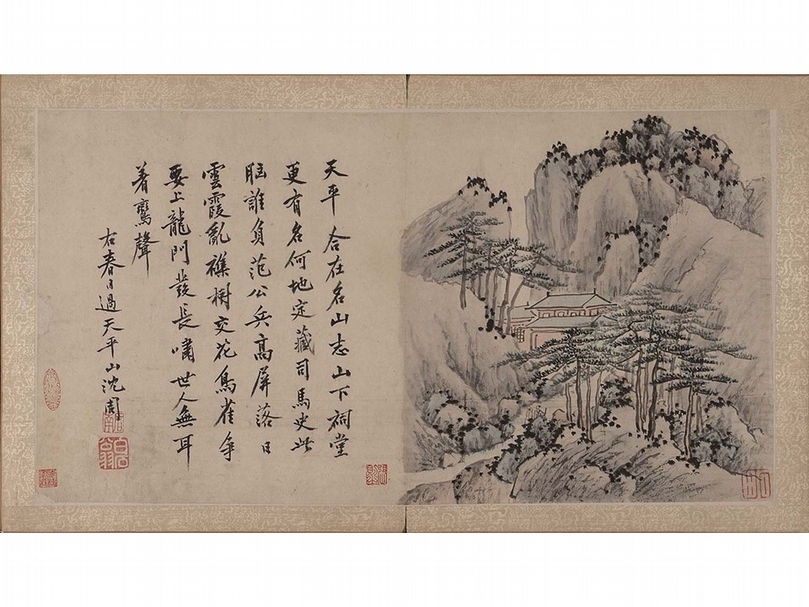 天平合在名山志山下祠堂
更有名何地定藏司馬史此
胸誰負范公兵高屏落日
雲霞亂襍樹交花鳥雀爭
要上龍門發長嘯世人無耳
着鸞聲
右春日過天平山沈周
啓南
白石翁